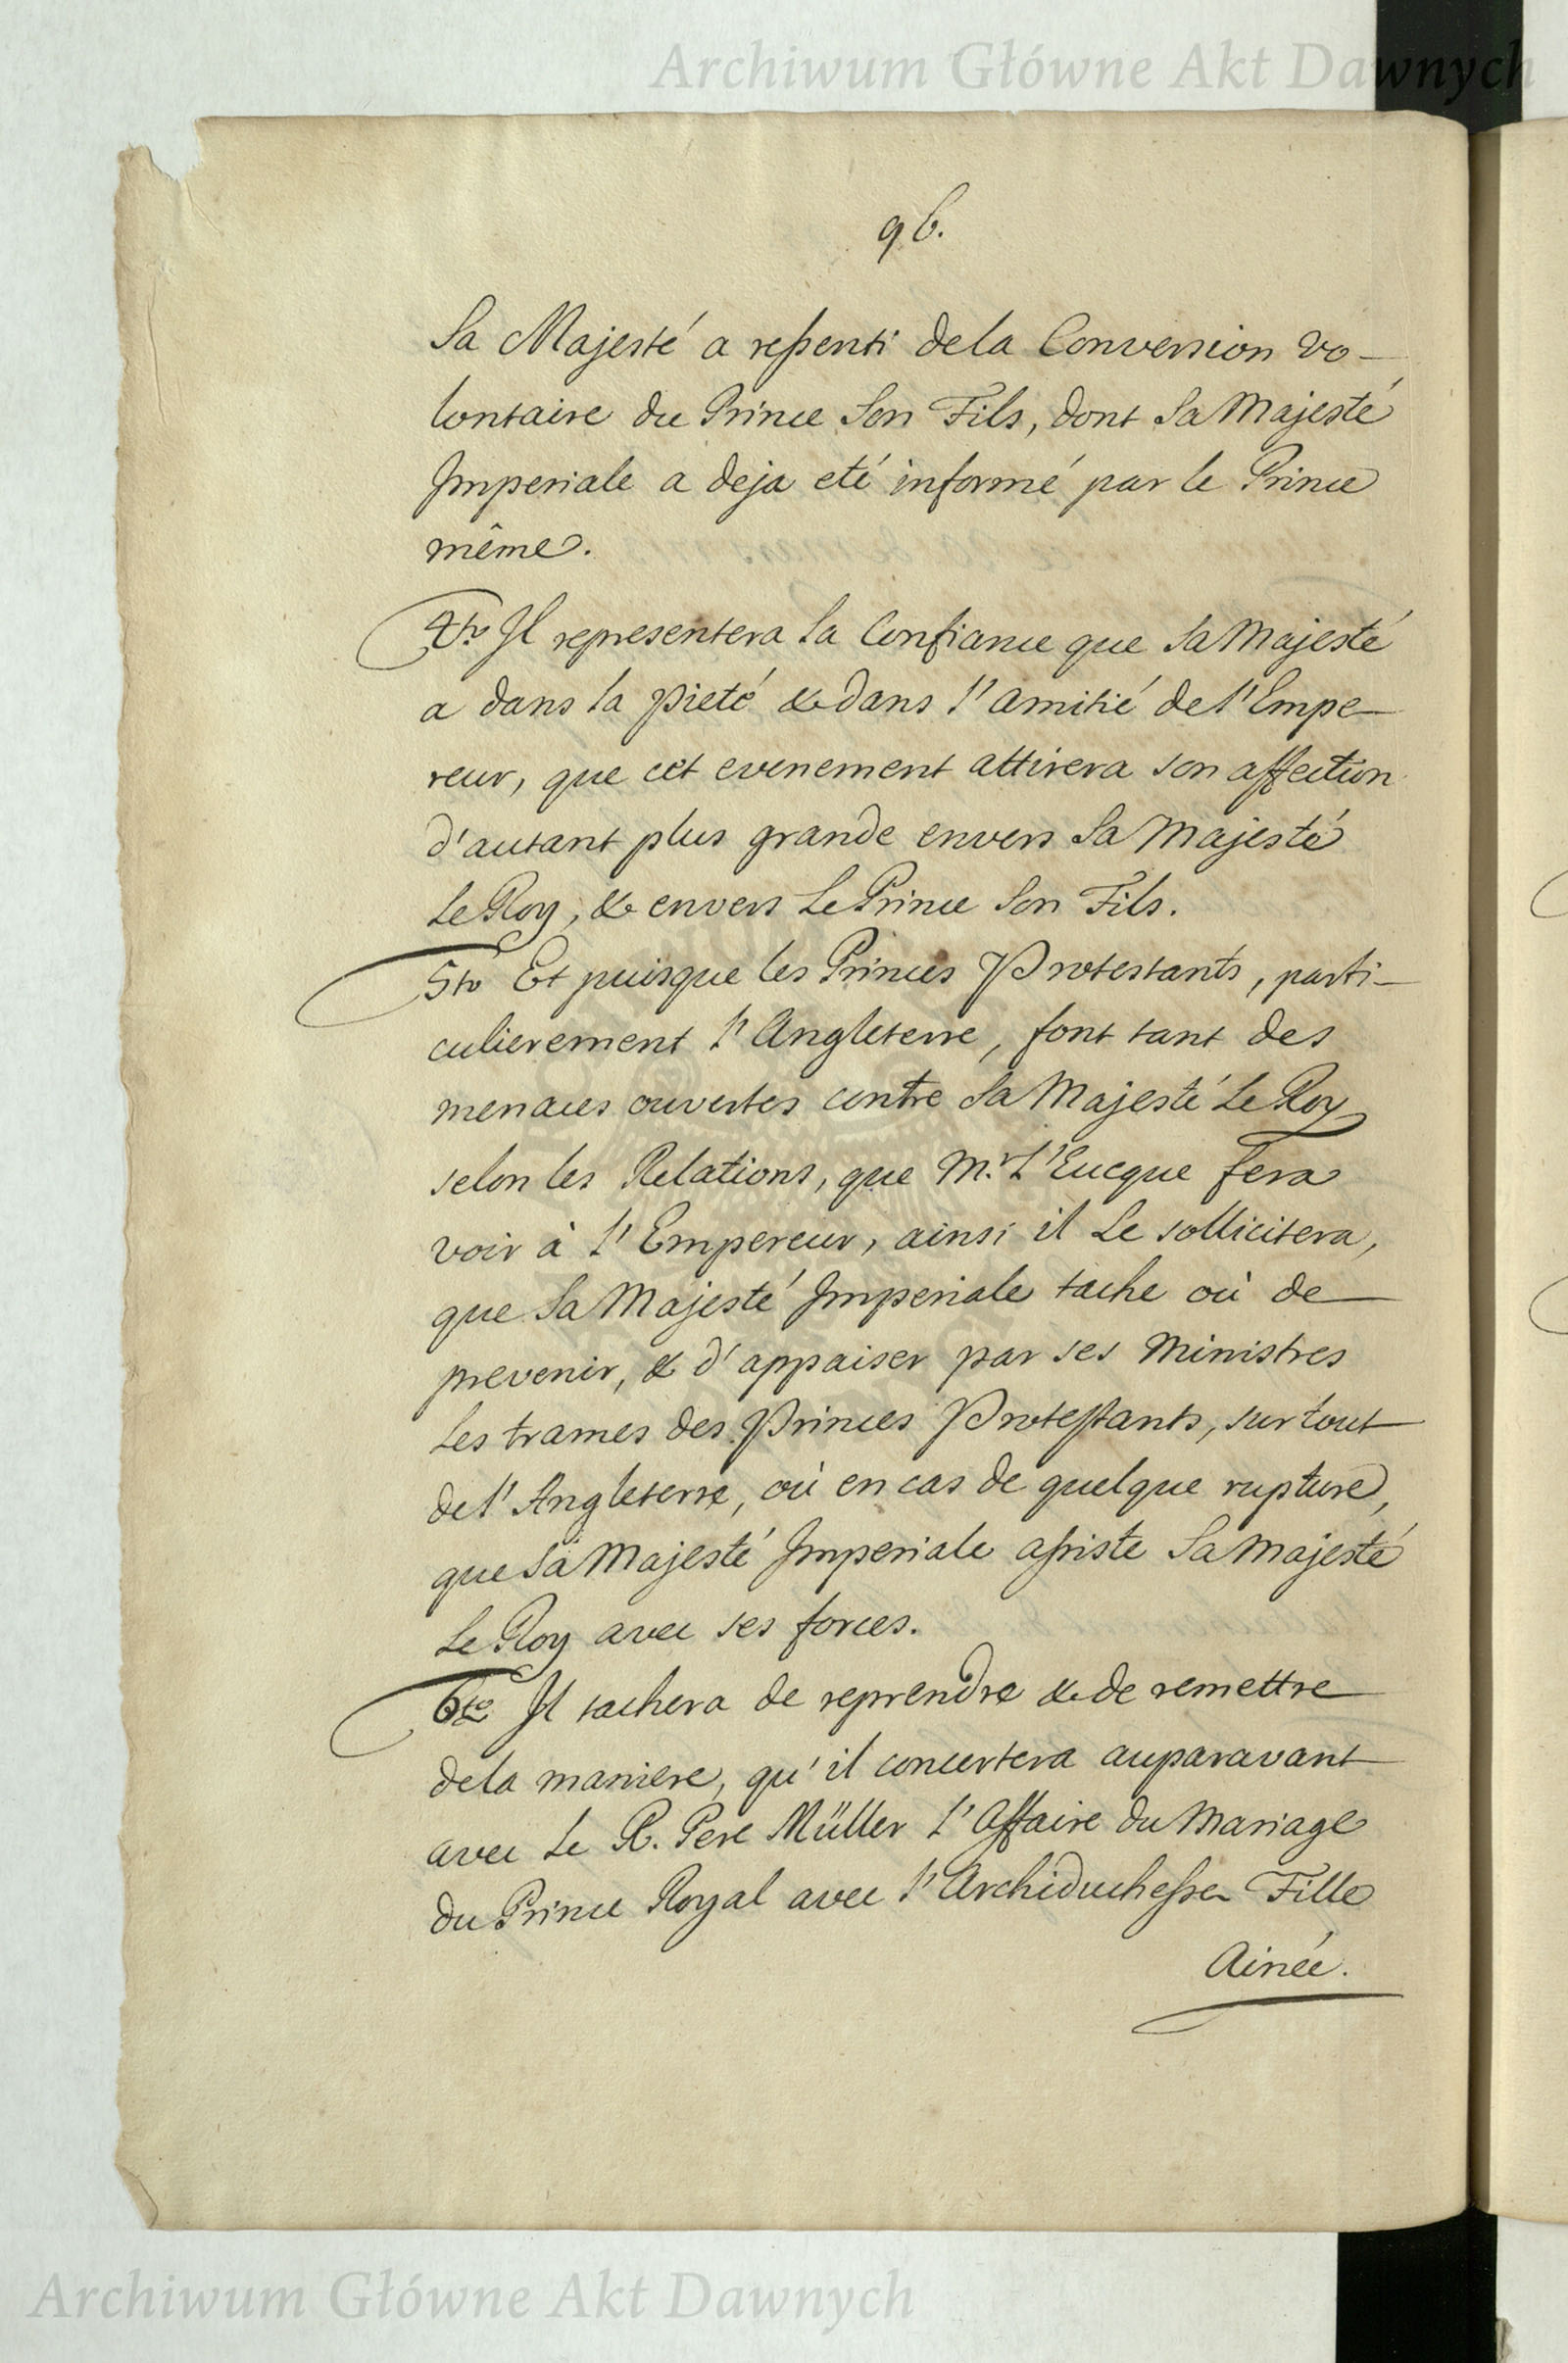 Archiwum Główne Akt Dawnych
96.
Sa Majesté a ressenti dela Conversion vo-
lontaire du Prince Son Fils, dont Sa Majesté
Imperiale a deja eté informé par le Prince
même.
4to Il representera la Confiance que Sa Majesté
a dans la pieté & dans l'amitié de l'Empe-
reur, que cet evenement attirera son affection
d'autant plus grande envers Sa Majesté
Le Roy, & envers Le Prince Son Fils.
5to Et puisque les Princes Protestants, parti-
culierement l'Angleterre, font tant des
menaces ouvertes contre Sa Majesté Le Roy
selon les Relations, que Mr. L'Eucque fera
voir à l'Empereur, ainsi il Le sollicitera,
que Sa Majesté Imperiale tache où de
prevenir, & d'appaiser par ses Ministres
Les trames des Princes Protestants, sur tout
de l'Angleterre, où en cas de quelque rupture,
que Sa Majesté Imperiale assiste Sa Majesté
Le Roy avec ses forces.
6to Il tachera de reprendre & de remettre
dela maniere, qu'il concertera auparavant
avec Le R. Pere Müller l'Affaire du Mariage
du Prince Royal avec l'Archiduchesse Fille
Ainée.
Archiwum Główne Akt Dawnych